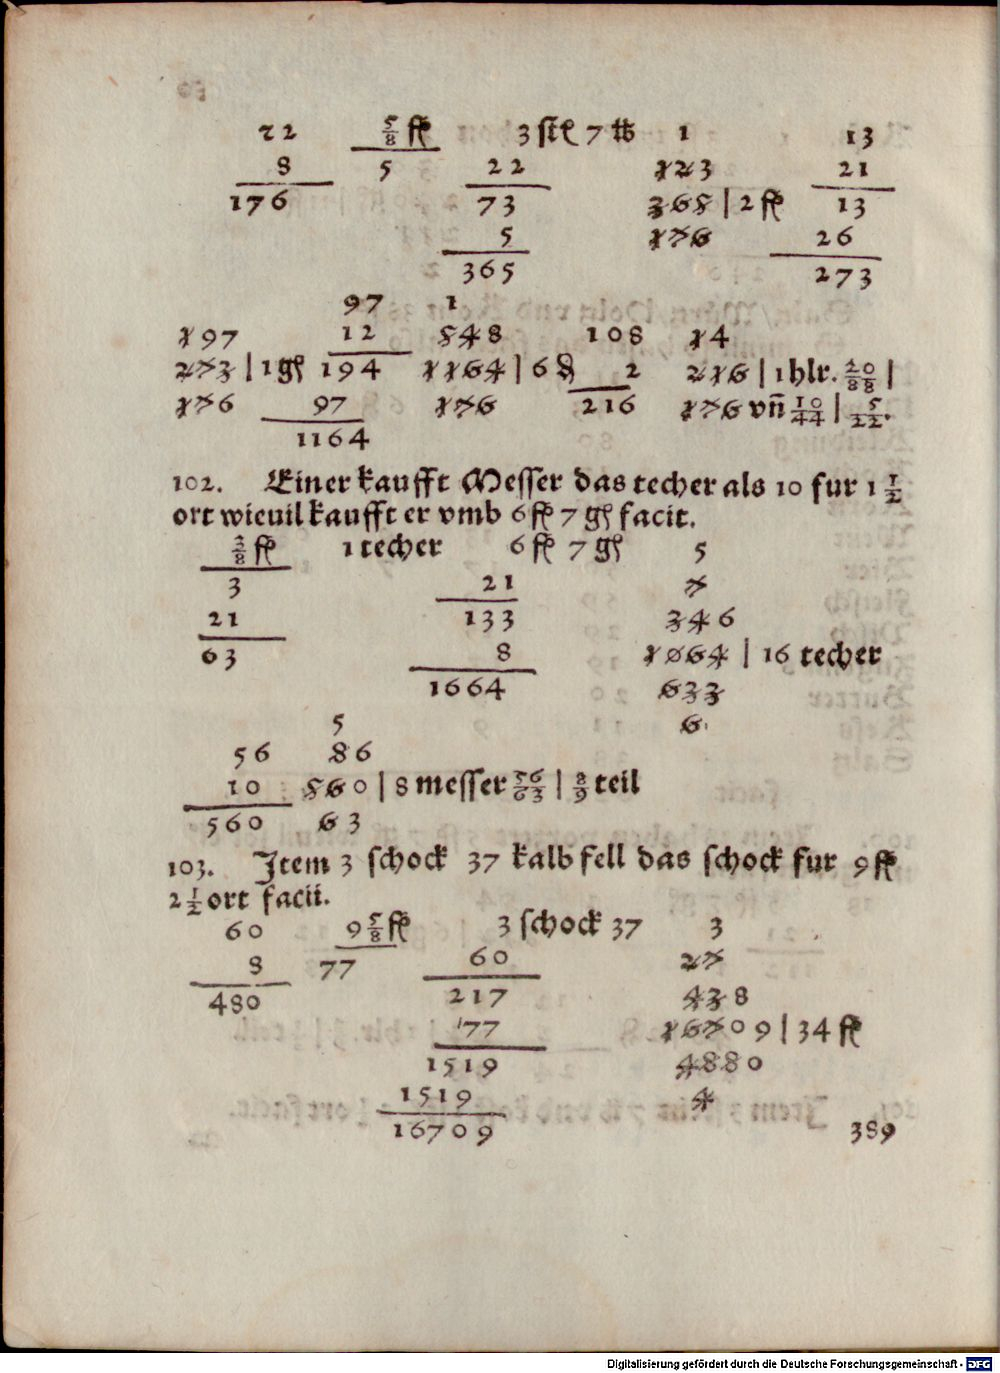 22 5/8 fl 3 stē 7 ℔ 1 13
8 5 22 123 21
176 73 365 | 2 fl 13
5 176 26
365 273
97 1
197 12 548 108 14
273 | 1 gſ 194 1164 | 6 ₰ 2 216 | 1 hlr. 20/88 |
176 97 176 216 176 vñ 10/44 | 5/22.
1164
102. Einer kaufft Messer das techer als 10 fur 1 1/2
ort wieuil kaufft er vmb 6 fl 7 gſ facit.
3/8 fl 1 techer 6 fl 7 gſ 5
3 21 7
21 133 346
63 8 1064 | 16 techer
1664 633
5 6
56 86
10 560 | 8 messer 56/63 | 8/9 teil
560 63
103. Item 3 schock 37 kalb fell das schock fur 9 fl
2 1/2 ort facit.
60 9 5/8 fl 3 schock 37 3
8 77 60 27
480 217 438
77 16709 | 34 fl
1519 4880
1519 4
16709 389
Digitalisierung gefördert durch die Deutsche Forschungsgemeinschaft - DFG